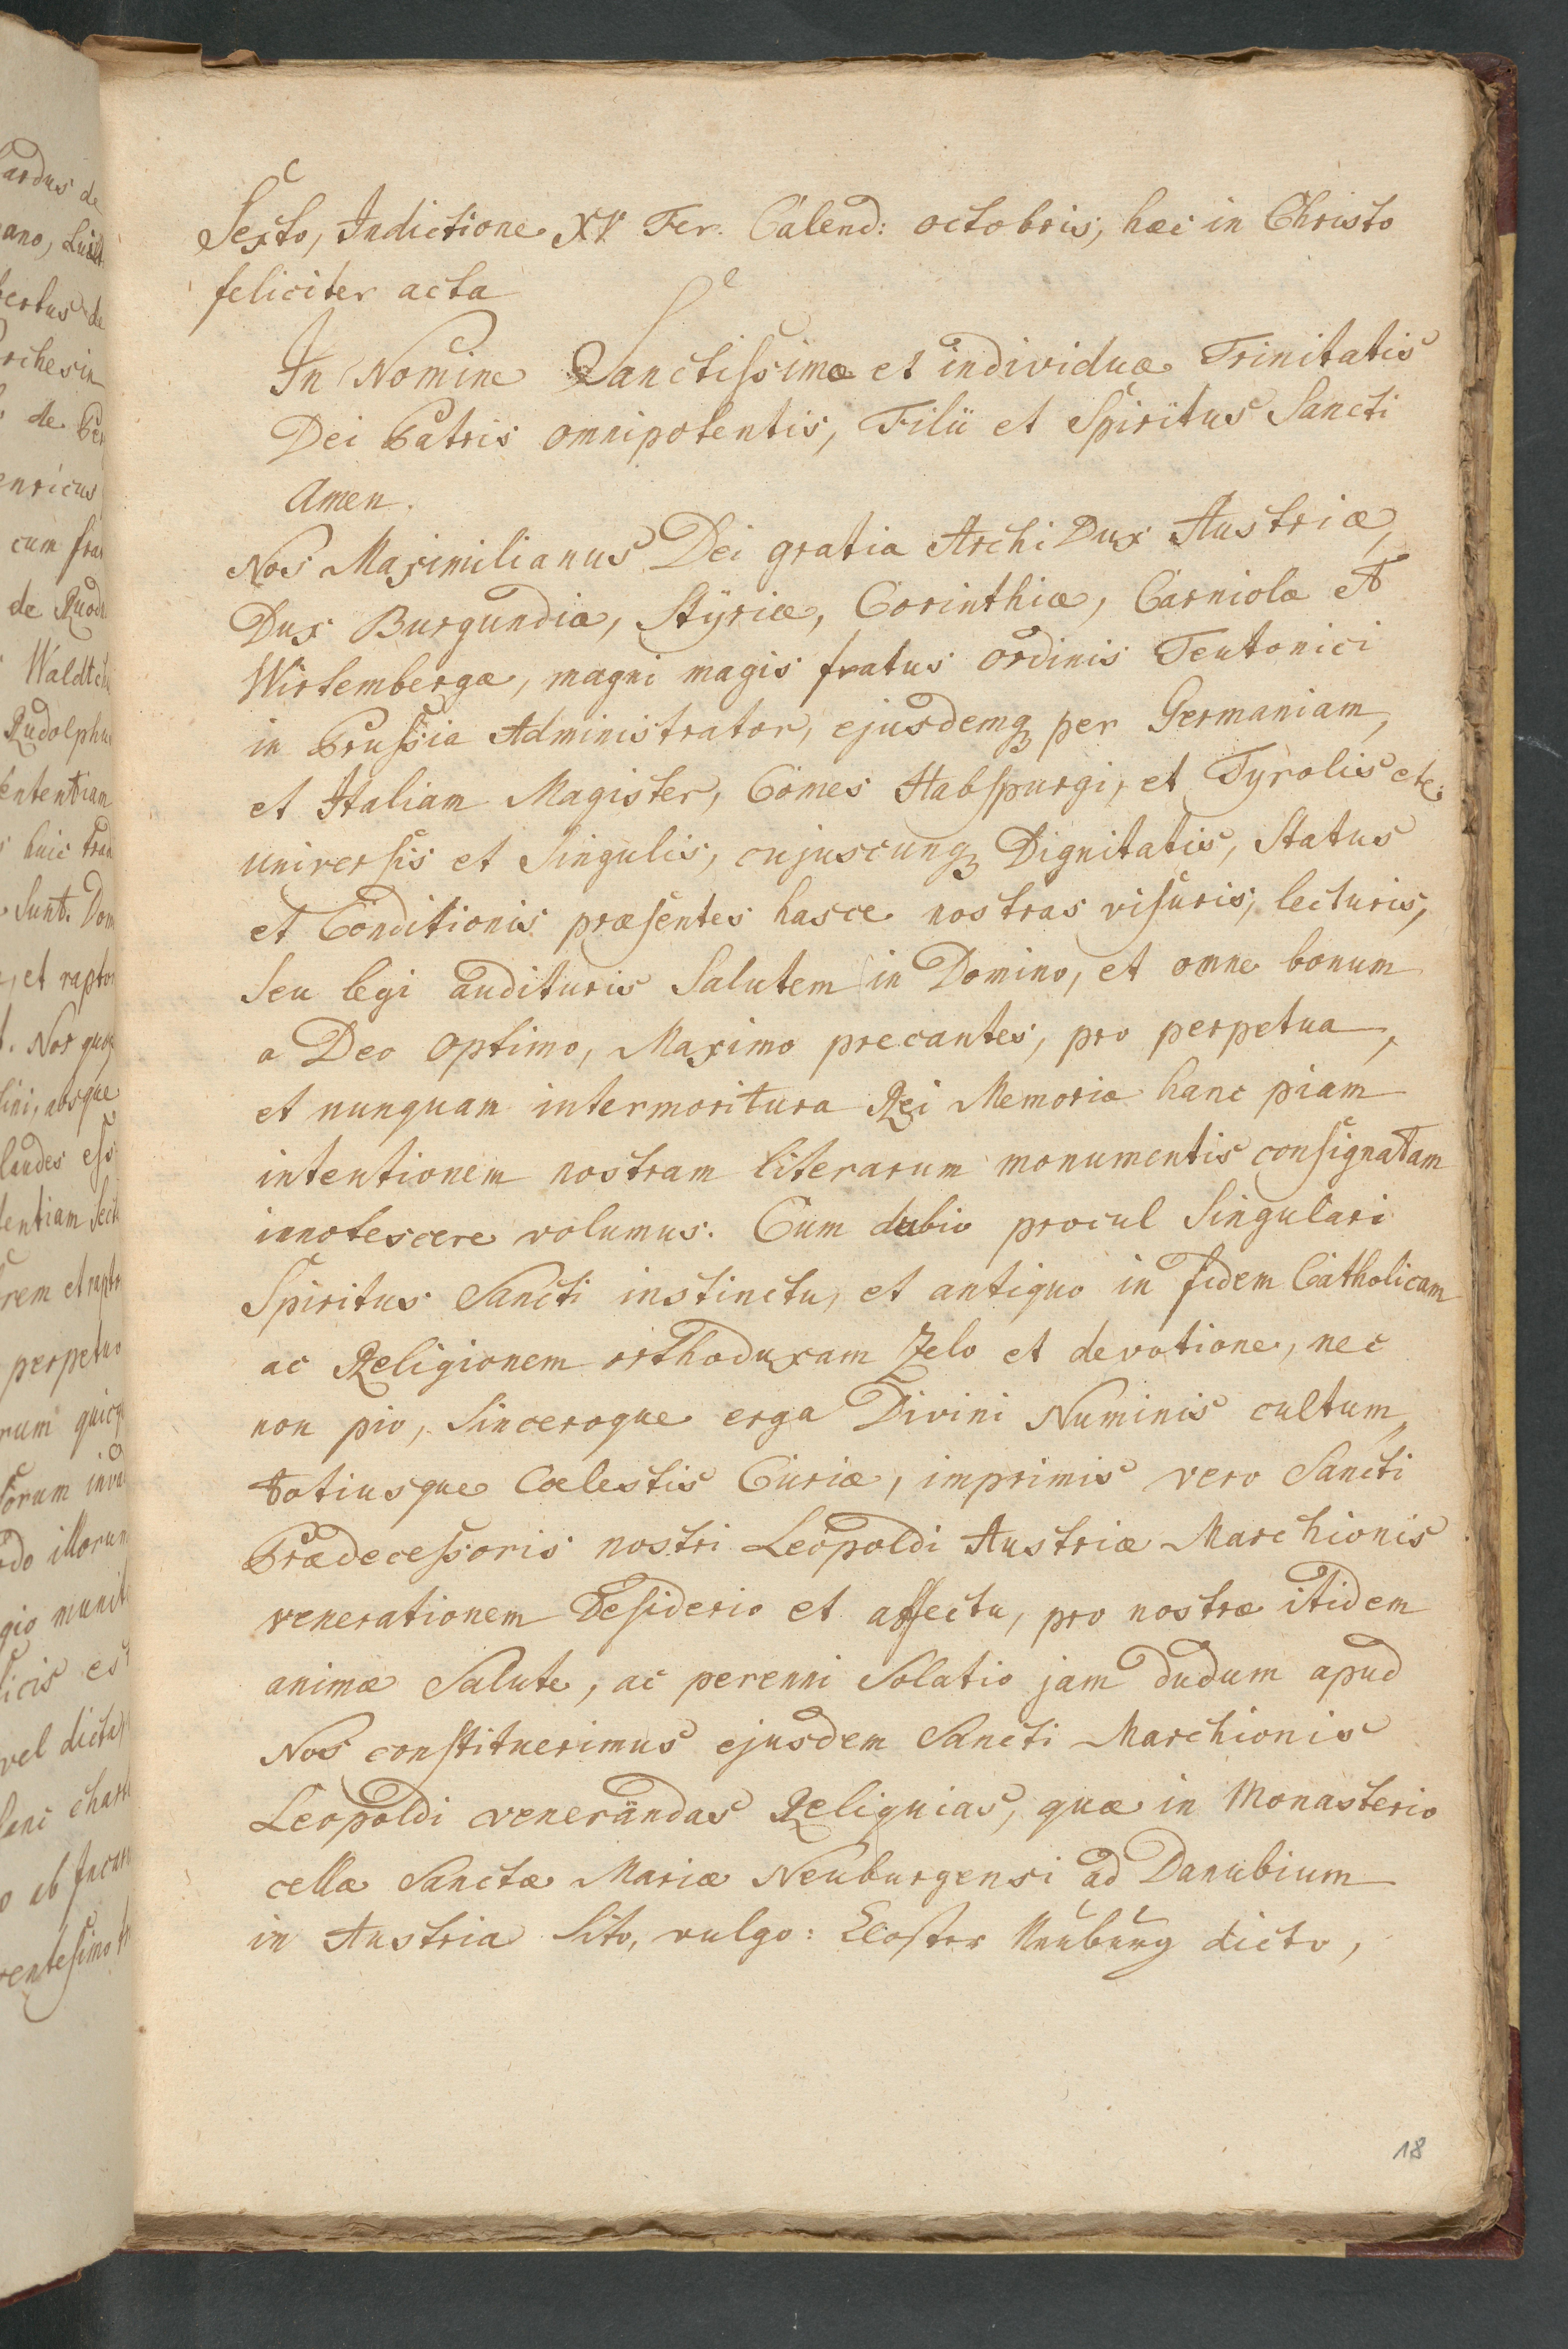 Sexto, Indictione XV Fer. Calend: octobris, hæc in Christo
feliciter acta
In Nomine Sanctissimæ et individuæ Trinitatis
Dei Patris omnipotentis, Filii et Spiritus Sancti
Amen.
Nos Maximilianus Dei gratia Archi Dux Austriæ,
Dux Burgundiæ, Stÿriæ, Corinthiæ, Carniolæ et
Wirtembergæ, magni magis fratus ordinis Teutonici
in Prussia Administrator, ejusdemq; per Germaniam,
et Italiam Magister, Comes Habspurgi, et Tyrolis etc;
universis et Singulis, cujuscunq; Dignitatis, Status
et Conditionis præsentes hasce nostras visuris, lecturis,
seu legi audituris Salutem in Domino, et omne bonum
a Deo optimo, Maximo precantes, pro perpetua,
et nunquam intermoritura Rei Memoria hanc piam
intentionem nostram literarum monumentis consignatam
innotescere volumus. Cum dubio procul Singulari
Spiritus Sancti instinctu, et antiquo in fidem Catholicam
ac Religionem orthoduxam Zelo et devotione, nec
non pio, Sinceroque erga Divini Numinis cultum,
totiusque Cœlestis Curiæ, imprimis vero Sancti
Prædecessoris nostri Leopoldi Austriæ Marchionis
venerationem Desiderio et affectu, pro nostræ itidem
animæ Salute, ac perenni Solatio jam dudum apud
Nos constituerimus ejusdem Sancti Marchionis
Leopoldi venerandas Reliquias, quæ in Monasterio
cellæ Sanctæ Mariæ Neuburgensi ad Danubium
in Austria Sito, vulgo: Closter Neuburg dicto,
18